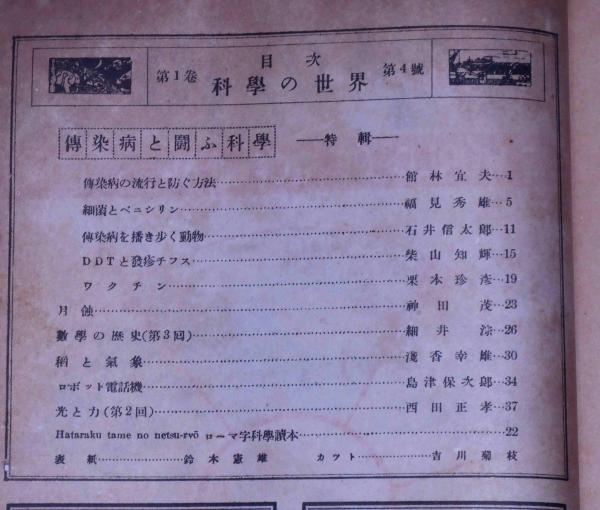 目次
第1巻 科學の世界 第4號
傳染病と闘ふ科學 ——特輯——
傳染病の流行と防ぐ方法……館林宜夫…1
細菌とペニシリン……福見秀雄…5
傳染病を播き歩く動物……石井信太郎…11
DDTと發疹チフス……柴山知輝…15
ワクチン……栗本珍彦…19
月蝕……神田茂…23
數學の歴史(第3回)……細井淙…26
稻と氣象……淺香幸雄…30
ロボット電話機……島津保次郎…34
光と力(第2回)……西田正孝…37
Hataraku tame no netsu-ryō ローマ字科學讀本……22
表紙……鈴木憲雄 カット……吉川菊枝